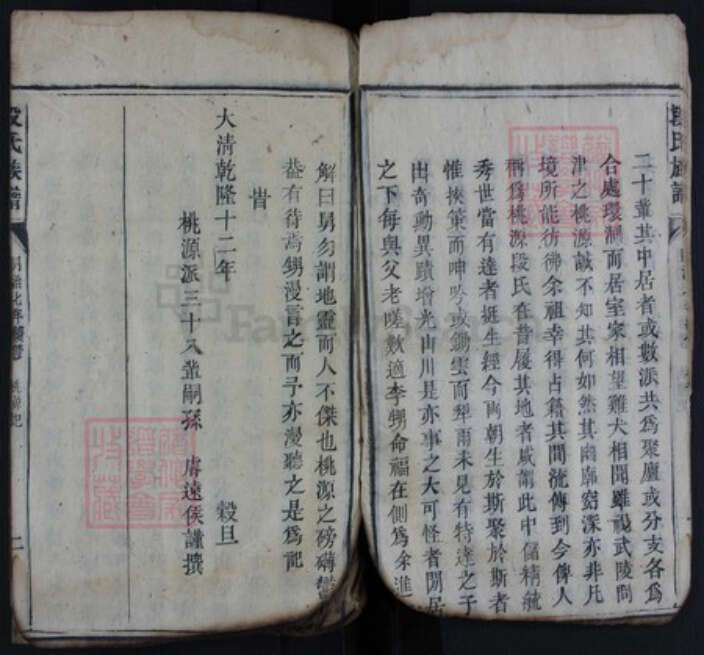 段氏族譜
二十輩其中居者或數派共為聚廬或分支各為
合處環洞而居室家相望雞犬相聞雖視武陵問
津之桃源誠不知其何如然其幽廓窈深亦非凡
境所能彷彿余祖幸得占籍其間流傳到今俾人
稱為桃源段氏在昔履其地者咸謂此中儲精毓
秀世當有達者挺生經今兩朝生於斯聚於斯者
惟挾策而呻吟或鋤雲而犂雨未見有特達之子
出奇動異蹟增光山川是亦事之大可怪者閒居
之下每與父老嗟數適李甥命福在側為余進
解曰舅勿謂地靈而人不傑也桃源之磅礴鬱
益有待焉甥漫言之而予亦漫聽之是為記
旹
大清乾隆十二年 穀旦
桃源派三十八輩嗣孫 膚遠侯謹撰
段氏族譜
二
FamilySearch